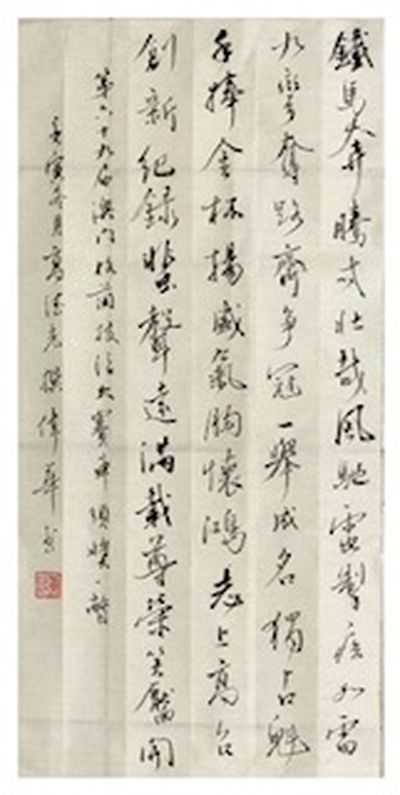 鐵馬奔騰壯哉風馳電掣疾如雷
九彎奪路齊爭冠一舉成名獨占魁
手捧金杯揚威氣胸懷鴻志上高台
創新紀錄蜚聲遠滿載尊榮笑靨開
第六十九屆澳門格蘭披治大賽車頒獎一瞥
壬寅冬月高德光撰偉華書